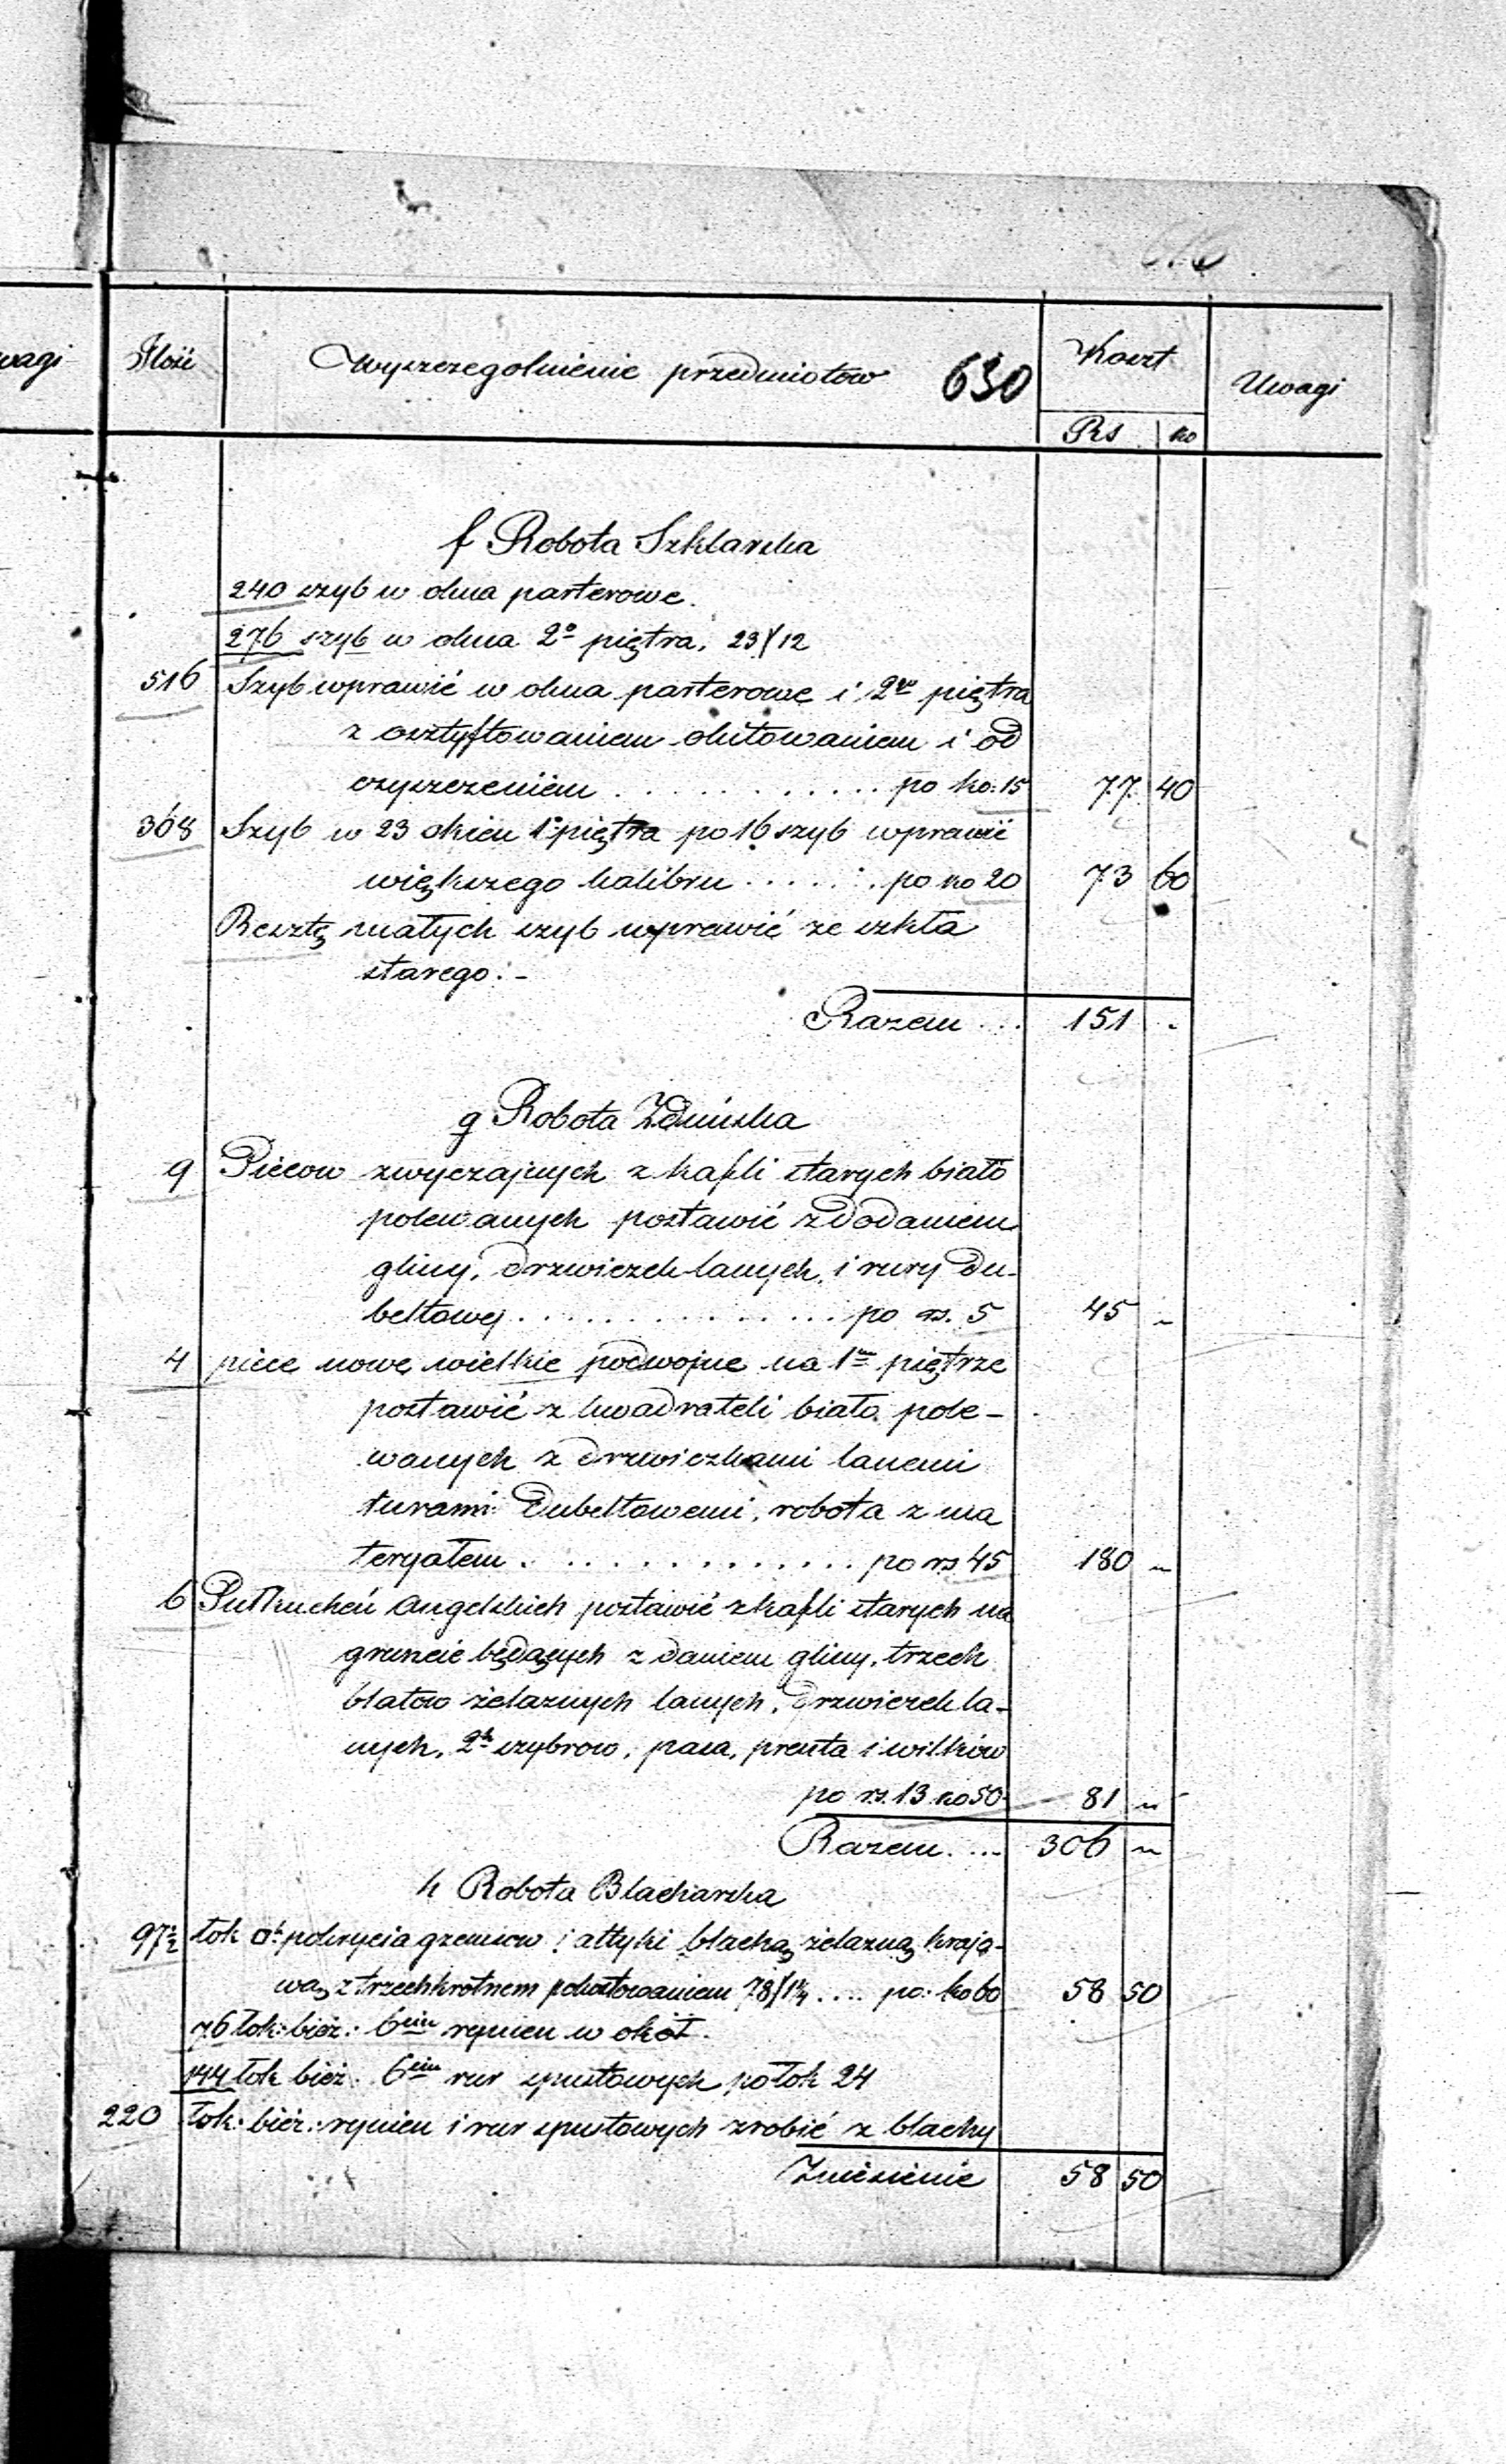 wagi
Ilość
Wyszczegolnienie przedmiotow
630
Koszt
Uwagi
Rs ko
f Robota Szklarska
240 szyb w okna parterowe.
276 szyb w okna 2º piętra. 23/12
516 Szyb wprawić w okna parterowe i 2go piętra
z osztyftowaniem okitowaniem i od
czyszczeniem . . . . . . . . . . po ko: 15 77 40
368 Szyb w 23 okien 1º piętra po 16 szyb wprawić
większego kalibru . . . . . . po ko 20 73 60
Resztę małych szyb wprawić ze szkła
starego. -
Razem . . . 151 -
g Robota Zduńska
9 Piecow zwyczajnych z kafli starych biało
polewanych postawić z dodaniem
gliny, drzwiczek lanych, i rury du-
beltowej . . . . . . . . . . . . po rs. 5 45 -
4 piece nowe wielkie podwojne na 1m piętrze
postawić z kwadrateli biało pole-
wanych z drzwiczkami lanemi
rurami dubeltowemi, robota z ma
teryałem . . . . . . . . . . . . po rs 45 180 -
6 Kucheń Angelskich postawić z kafli starych na
gruncie będących z daniem gliny, trzech
blatow żelaznych lanych, drzwiczek la-
nych, 2ch szybrow, pasa, pręta i wilków
po rs. 13 ko 50 81 -
Razem. . . . 306 -
h Robota Blacharska
97½ łok □ pokrycia gzemsow i attyki blachą żelazną krajo-
wą z trzechkrotnem pokostowaniem 78/1¼ . . . . po: ko 60 58 50
76 łok: bież: 6ciu rynien w okół.
144 łok bież: 6ciu rur spustowych po łok 24
220 łok: bież: rynien i rur spustowych zrobić z blachy
Zniesienie 58 50